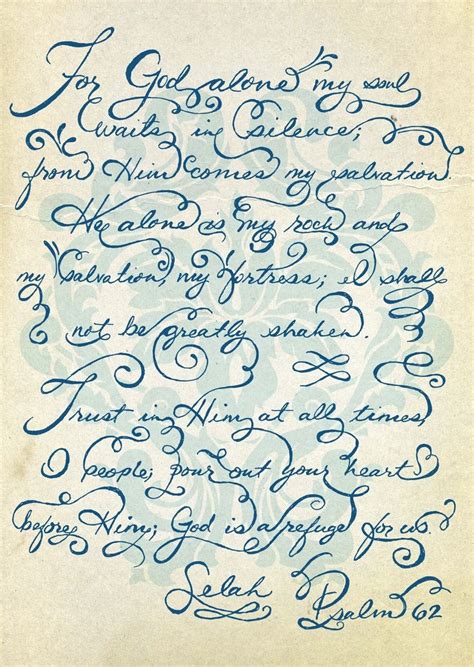 For God alone my soul
waits in silence;
from Him comes my salvation.
He alone is my rock and
my salvation, my fortress; I shall
not be greatly shaken.
Trust in Him at all times,
O people; pour out your heart
before Him; God is a refuge for us.
Selah Psalm 62